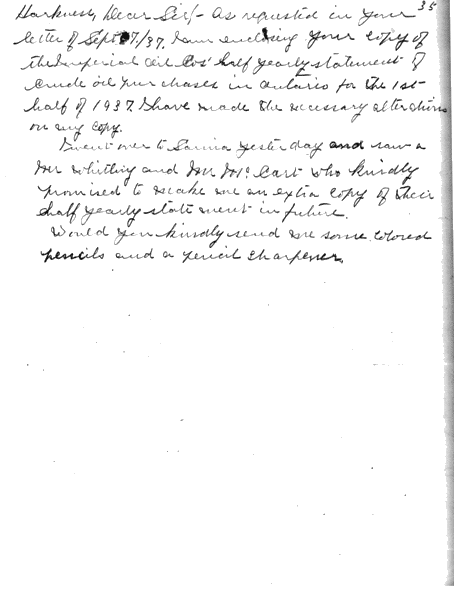 35
Harkness, Dear Sir/- As requested in your
letter of Sept 7/37, I am enclosing your copy of
the Imperial Oil Cos' half yearly statement of
crude oil purchases in Ontario for the 1st
half of 1937. I have made the necessary alterations
on my copy.
I went over to Sarnia yesterday and saw a
Mr Whitling and Mr Mc. Cart who kindly
promised to make me an extra copy of their
half yearly statement in future.
Would you kindly send me some colored
pencils and a pencil sharpener.